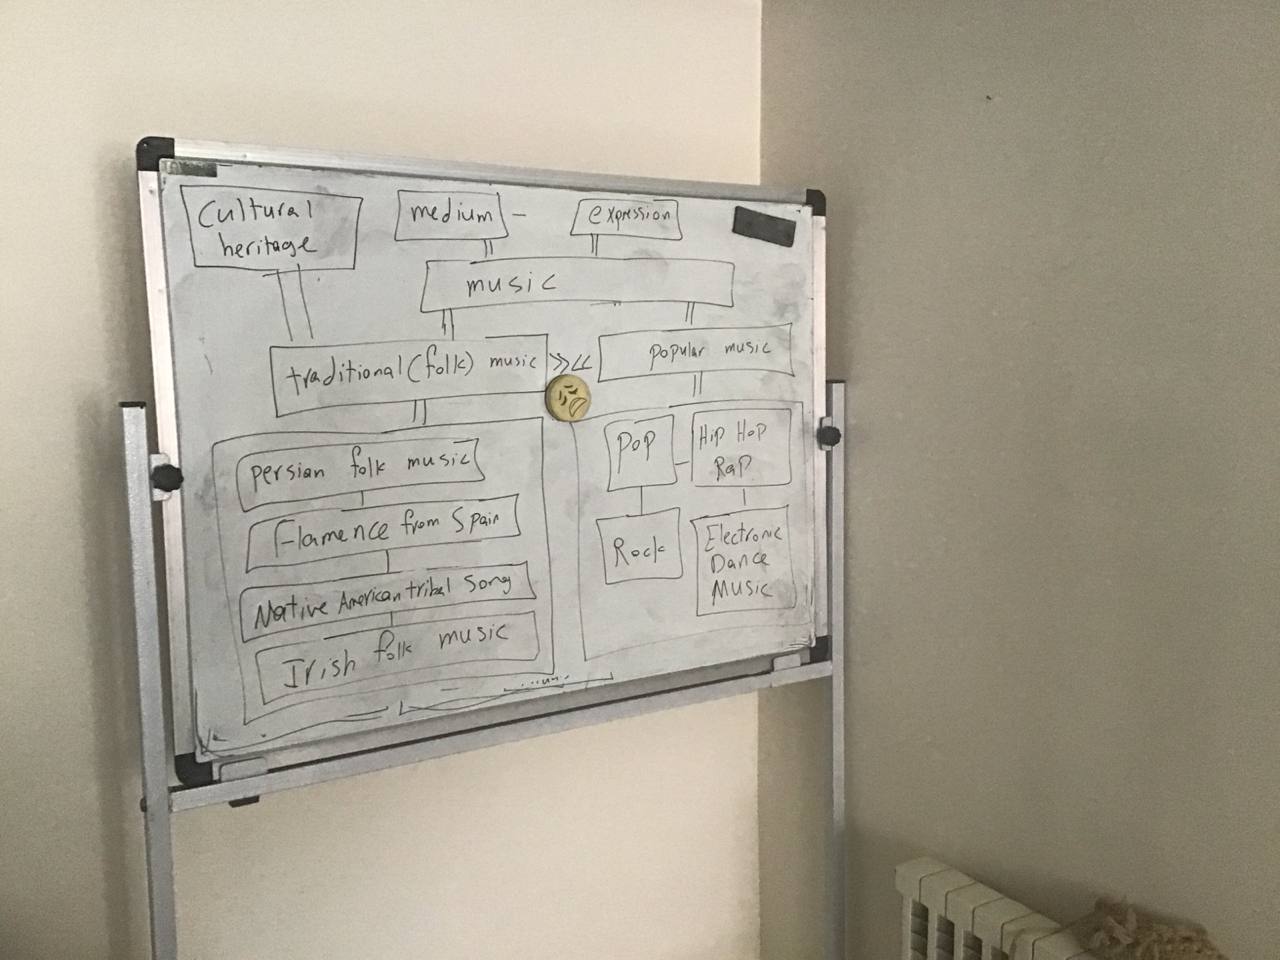 Cultural
heritage
medium -
expression
music
traditional (folk) music >> <<
popular music
Persian folk music
Flamence from Spain
Native American tribal Song
Irish folk music
Pop
Hip Hop
Rap
Rock
Electronic
Dance
Music